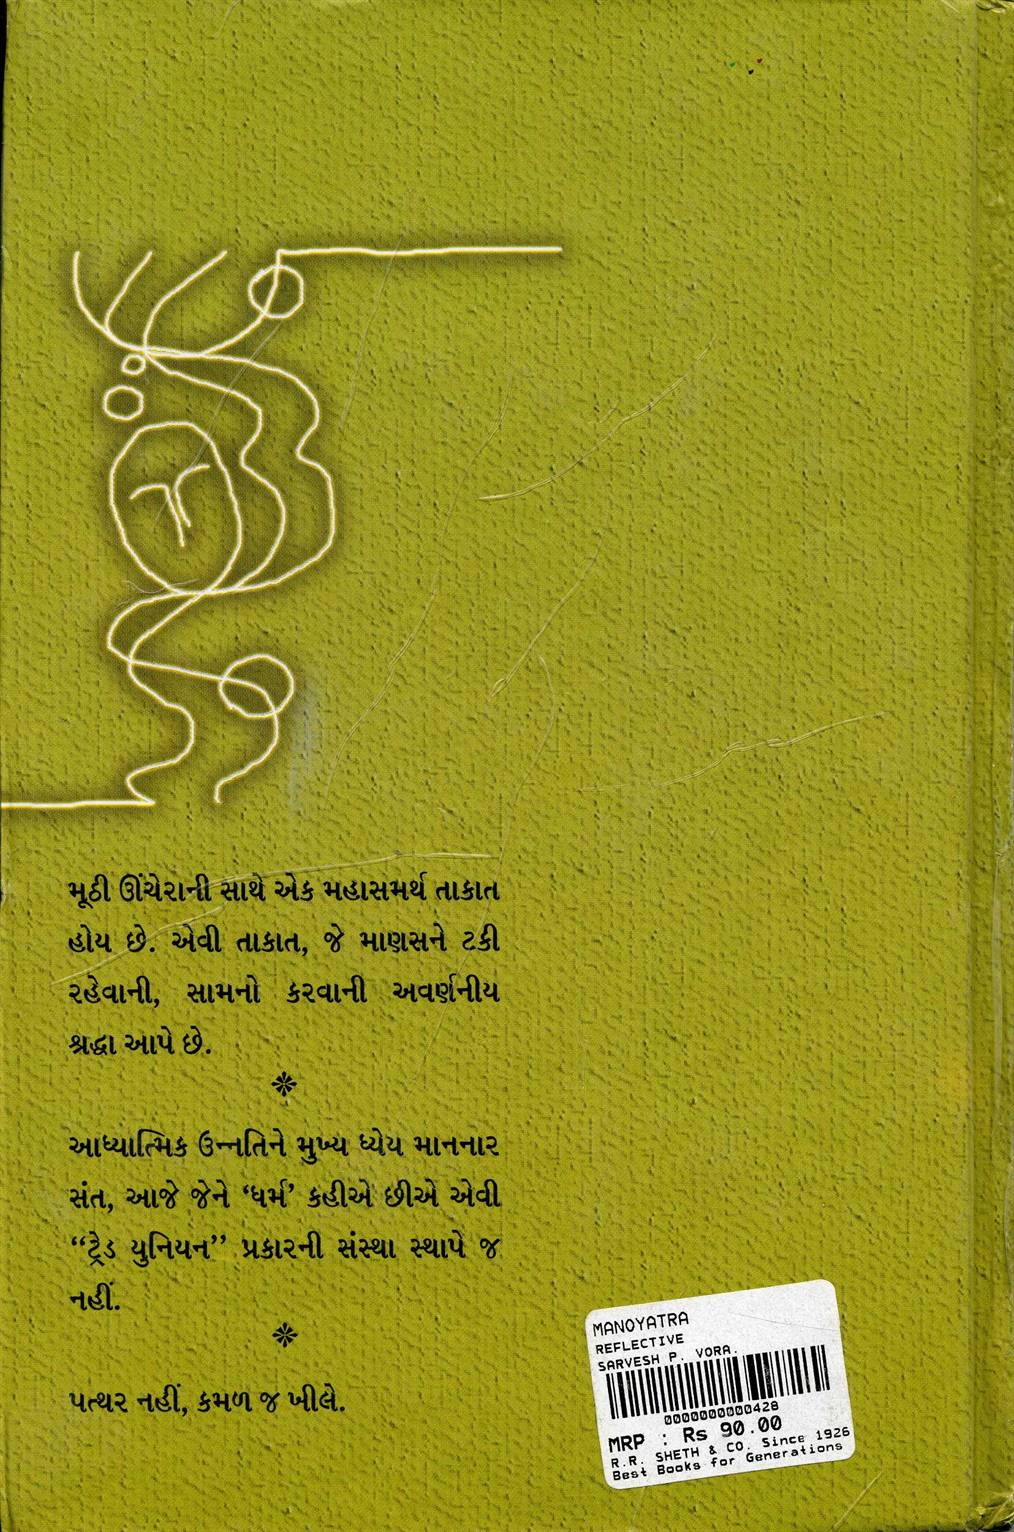 મૂઠી ઊંચેરાની સાથે એક મહાસમર્થ તાકાત
હોય છે. એવી તાકાત, જે માણસને ટકી
રહેવાની, સામનો કરવાની અવર્ણનીય
શ્રદ્ધા આપે છે.
આધ્યાત્મિક ઉન્નતિને મુખ્ય ધ્યેય માનનાર
સંત, આજે જેને ‘ધર્મ’ કહીએ છીએ એવી
“ટ્રેડ યુનિયન” પ્રકારની સંસ્થા સ્થાપે જ
નહીં.
પત્થર નહીં, કમળ જ ખીલે.
MANOYATRA
REFLECTIVE
SARVESH P. VORA.
0000000000428
MRP : Rs 90.00
R.R. SHETH & CO. Since 1926
Best Books for Generations